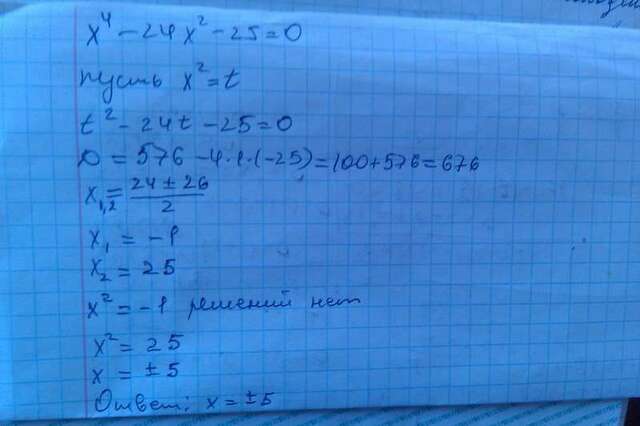 x⁴ - 24x² - 25 = 0
пусть x² = t
t² - 24t - 25 = 0
D = 576 - 4·1·(-25) = 100 + 576 = 676
x₁,₂ = (24 ± 26)/2
x₁ = -1
x₂ = 25
x² = -1 решений нет
x² = 25
x = ±5
Ответ: x = ±5